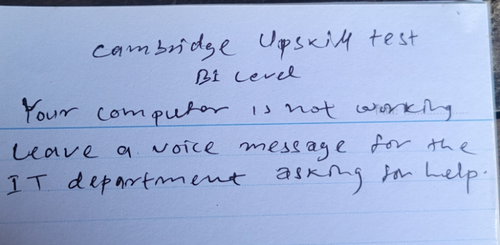 Cambridge Upskill test
B1 Level
Your computer is not working
Leave a voice message for the
IT department asking for help.